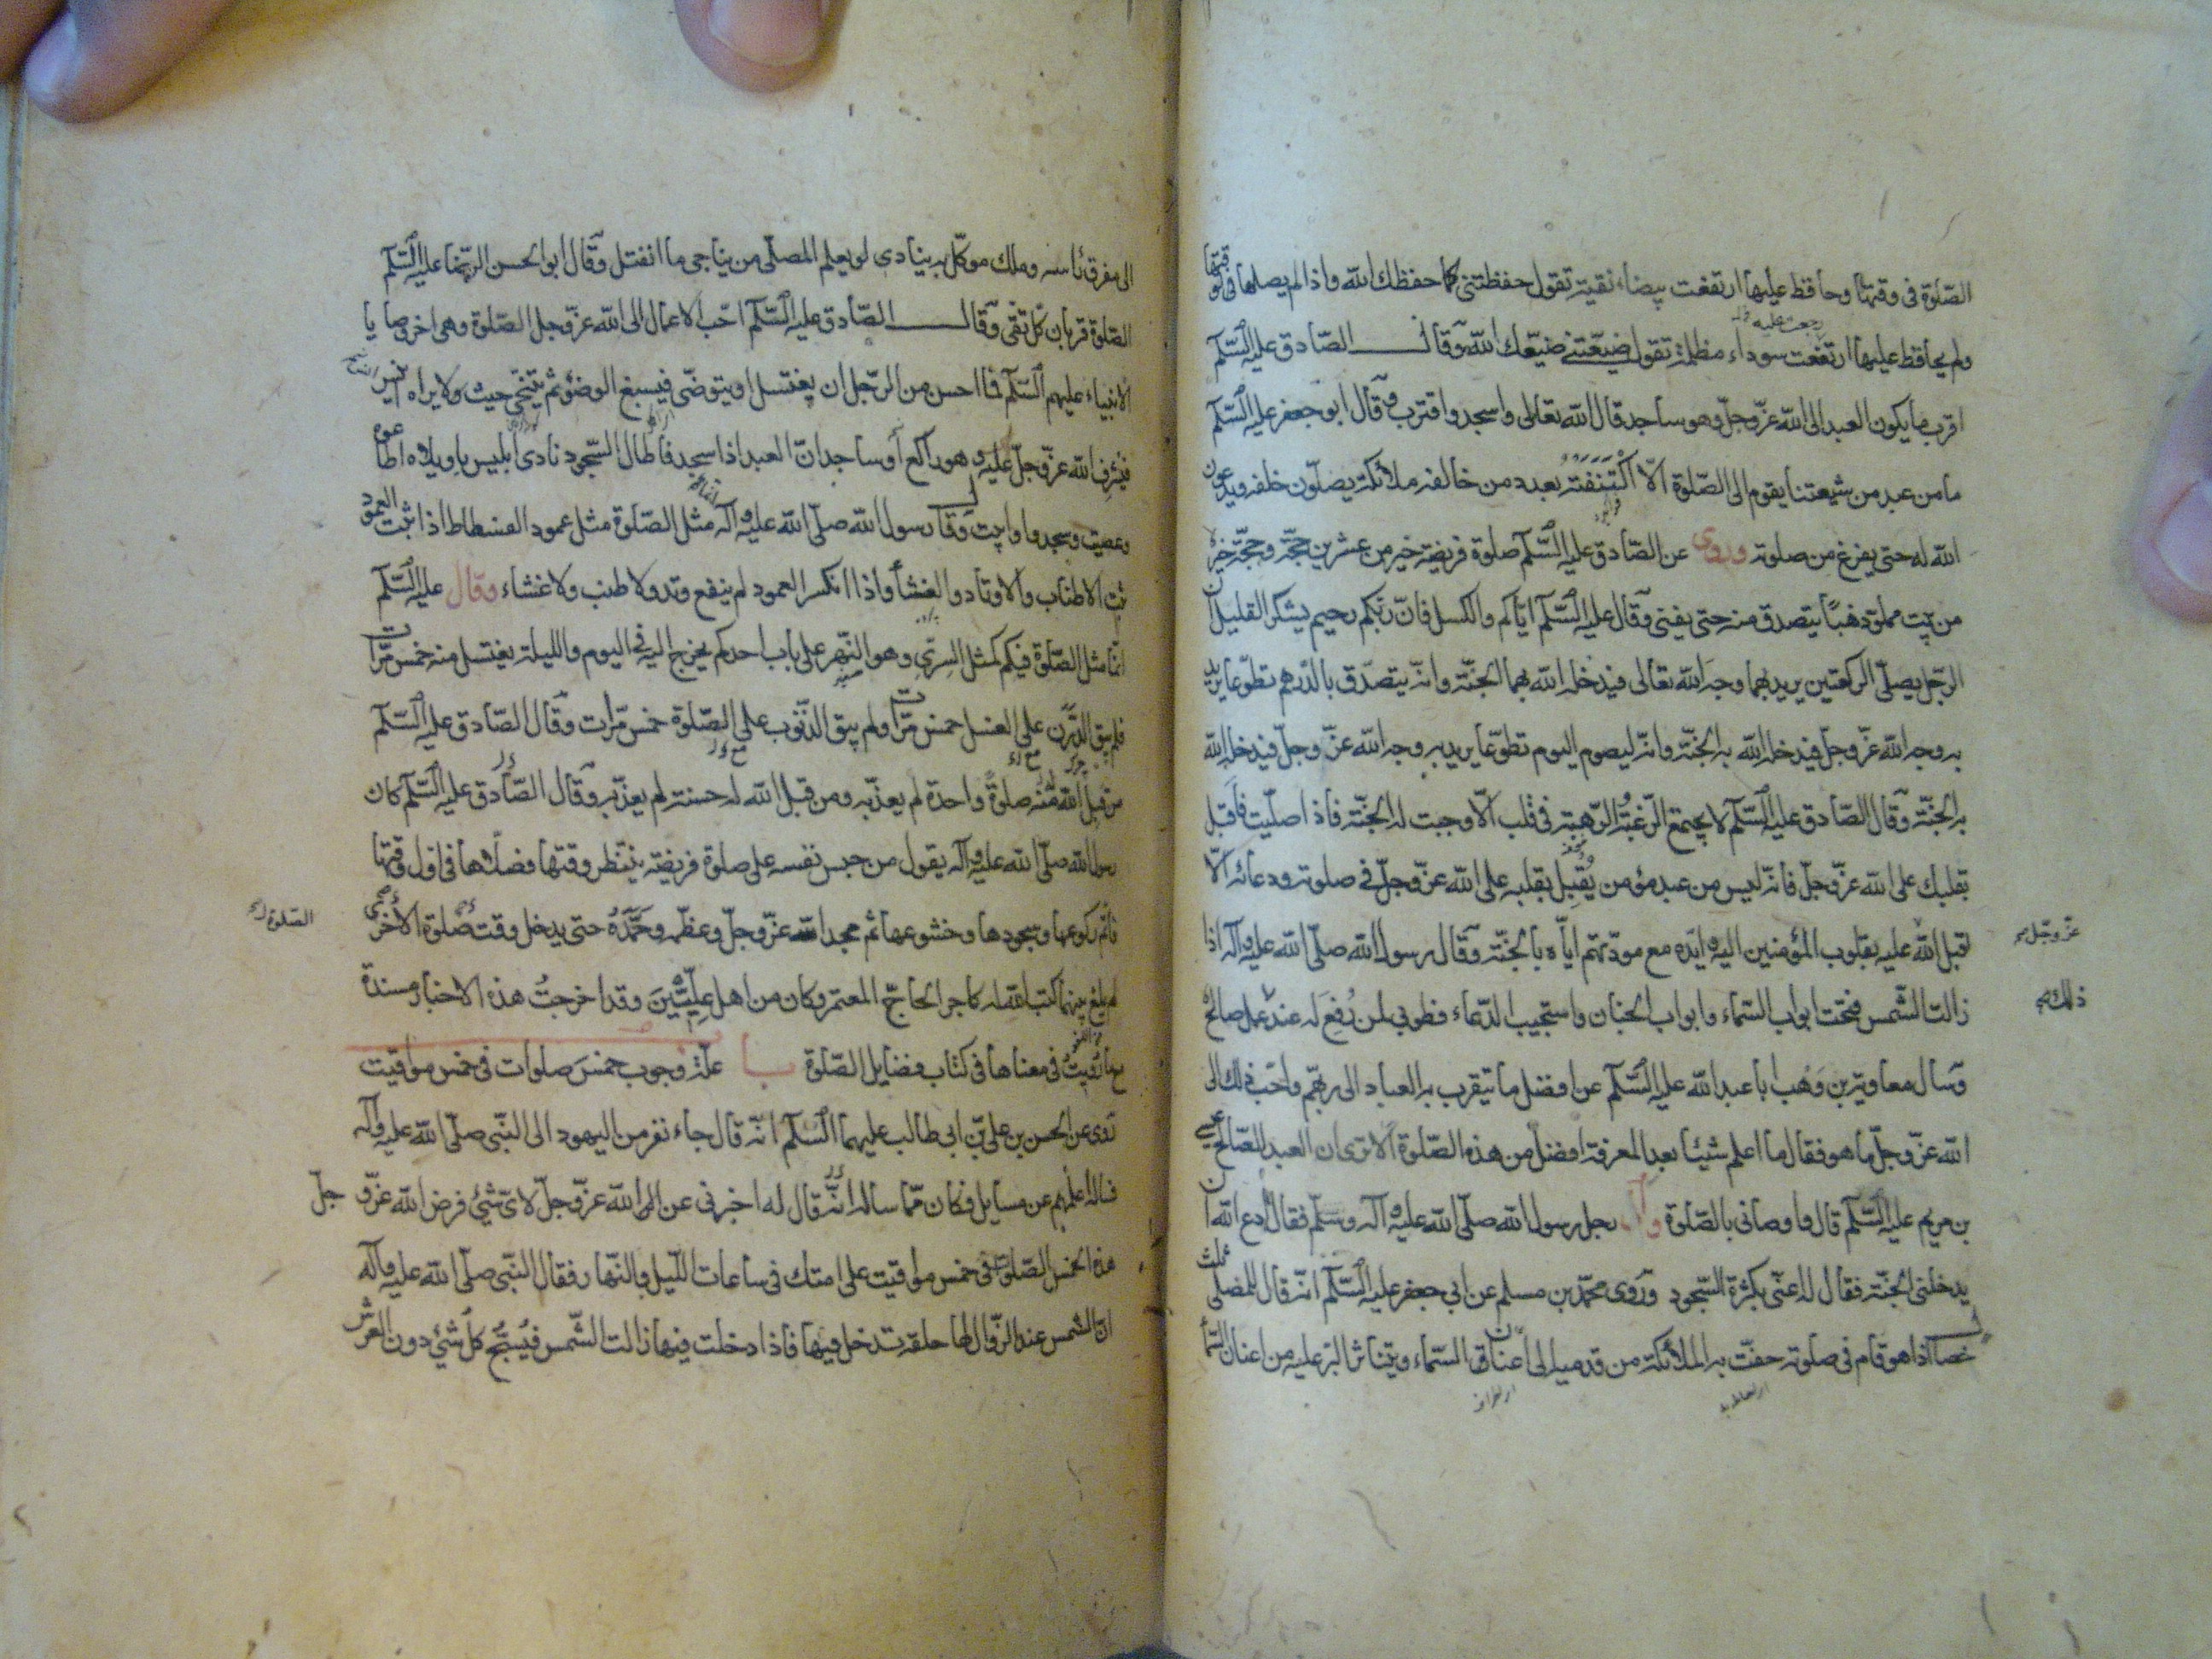 الصّلوة فى وقتها وحافظ عليها ارتفعت بيضاء نقية تقول حفظتنى كما حفظك الله واذا لم يصلها فى لوقتها
رجعت عليه
ولم يحافظ عليها ارتفعت سوداء مظلمة تقول ضيّعتنى ضيّعك الله وقال الصّادق عليه السّلم
اقرب ما يكون العبد الى الله عزّ وجلّ وهو ساجد قال الله تعالى واسجد واقترب وقال ابو جعفر عليه السّلم
ما من عبد من شيعتنا يقوم الى الصّلوة الّا اكْتَنَفَتْهُ بعدد من خالفه ملائكة يصلّون خلفه ويدعون
الله له حتى يفرغ من صلوته وروى عن الصّادق عليه السّلم صلوة فريضة خير من عشرين حجّة وحجّة خير
من بيت مملوّ ذهبًا يتصدق منه حتى يفنى وقال عليه السّلم ايّاكم والكسل فانّ ربّكم رحيم يشكر القليل ان
الرّجل يصلّى الركعتين يريد بهما وجه الله تعالى فيدخله الله بهما الجنّة وانّه يتصدّق بالدّرهم تطوّعا يريد
به وجه الله عزّ وجلّ فيدخله الله به الجنّة وانّه ليصوم اليوم تطوّعا يريد به وجه الله عزّ وجلّ فيدخله الله
به الجنّة وقال الصّادق عليه السّلم لا يجتمع الرّغبة والرّهبة فى قلب الّا وجبت له الجنّة فاذا صلّيت فاقبل
بقلبك على الله عزّ وجلّ فانّه ليس من عبد مؤمن يُقبِل بقلبه على الله عزّ وجلّ فى صلوته ودعائه الّا
اقبل الله عليه بقلوب المؤمنين اليه وايّده مع مودّتهم ايّاه بالجنّة وقال رسول الله صلّى الله عليه وآله اذا
عزّ وجلّ
زالت الشّمس فتحت ابواب السّماء وابواب الجنان واستجيب الدّعاء فطوبى لمن رُفِعَ له عند عمل صالح
ذلك
وسال معاوية بن وَهْب ابا عبد الله عليه السّلم عن افضل ما يتقرب به العباد الى ربهّم واحبّ ذلك الى
الله عزّ وجلّ ما هو فقال ما اعلم شيئا بعد المعرفة افضل من هذه الصّلوة الا ترى ان العبد الصّالح عيسى
بن مريم عليه السّلم قال واوصانى بالصّلوة واتى رجل رسول الله صلّى الله عليه وآله وسلّم فقال ادع الله ان
يدخلنى الجنّة فقال له اعنّى بكثرة السّجود ورَوى محمّد بن مسلم عن ابى جعفر عليه السّلم انّه قال للمصلّى ثلث
خصال اذا هو قام فى صلوته حفّت به الملائكة من قدميه الى اعنان السّماء ويتناثر البّر عليه من اعنان السّماء
الى مفرق رأسه وملك موكّل به ينادى لو يعلم المصلّى من يناجى ما انفتل وقال ابو الحسن الرّضا عليه السّلم
الصّلوة قربان كلّ تقى وقال الصّادق عليه السّلم احّب الاعمال الى الله عزّ وجل الصّلوة وهى اخر وصايا
الانبياء عليهم السّلم فما احسن من الرّجل ان يغتسل او يتوضّى فيسبغ الوضؤ ثم يتنحّى حيث لا يراه انيس
فيشرف الله عزّ وجلّ عليه وهو راكع او ساجد انّ العبد اذا سجد فاطال السّجود نادى ابليس يا ويلاه اطاعوه
وعصيت وسجدوا وابيت وَقال رسول الله صلّى الله عليه وآله مثل الصّلوة مثل عمود الفسطاط اذا ثبت العمود
ثبت الاطناب والاوتاد والغشأ واذا انكسر العمود لم ينفع وتد ولا طنب ولا غشاء وقال عليه السّلم
انّما مثل الصّلوة فيكم كمثل السِرّىِ وهو النّهر على باب احدكم يخرج اليه فى اليوم والليلة يغتسل منه خمس مرّات
فلم يبق الدّرن على الغسل خمس مرّات ولم يبق الذّنوب على الصّلوة خمس مرّات وقال الصّادق عليه السّلم
من قبل الله منه صلوةً واحدة لم يعذّبه ومن قبل الله له حسنة لم يعذّبه وقال الصّادق عليه السّلم كان
رسول الله صلّى الله عليه وآله يقول من حبس نفسه على صلوة فريضة ينتظر وقتها فصلّاها فى اول وقتها
فاتّم ركوعها وسجودها وخشوعها ثم مجد الله عزّ وجلّ وعظّمه وحَمَّدَهُ حتى يدخل وقت صلوة الاخرى
الصّلوة
لم يلغ بينهما كتب الله له كاجر الحاجّ المعتمر وكان من اهل عِلِّيّينَ وقد اخرجتُ هذه الاخبار مسندة
مع ما رُوِّيتُ فى معناها فى كتاب فضايل الصّلوة باب علّة وجوب خمس صلوات فى خمس مواقيت
رَوى عن الحسن بن علىّ بن ابى طالب عليهما السّلم انّه قال جاء نفر من اليهود الى النّبى صلّى الله عليه وآله
فساله اعلمهم عن مسايل فكان ممّا ساله انّه قال له اخبرنى عن الله عزّ وجلّ لاىّ شئ فرض الله عزّ و جلّ
هذه الخمس الصّلوات فى خمس مواقيت على امتك فى ساعات اللّيل والنّهار فقال النّبى صلّى الله عليه وآله
انّ الشمس عند الزّوال لها حلقة تدخل فيها فاذا دخلت فيها زالت الشّمس فيُسبّح كلّ شئ دون العرش